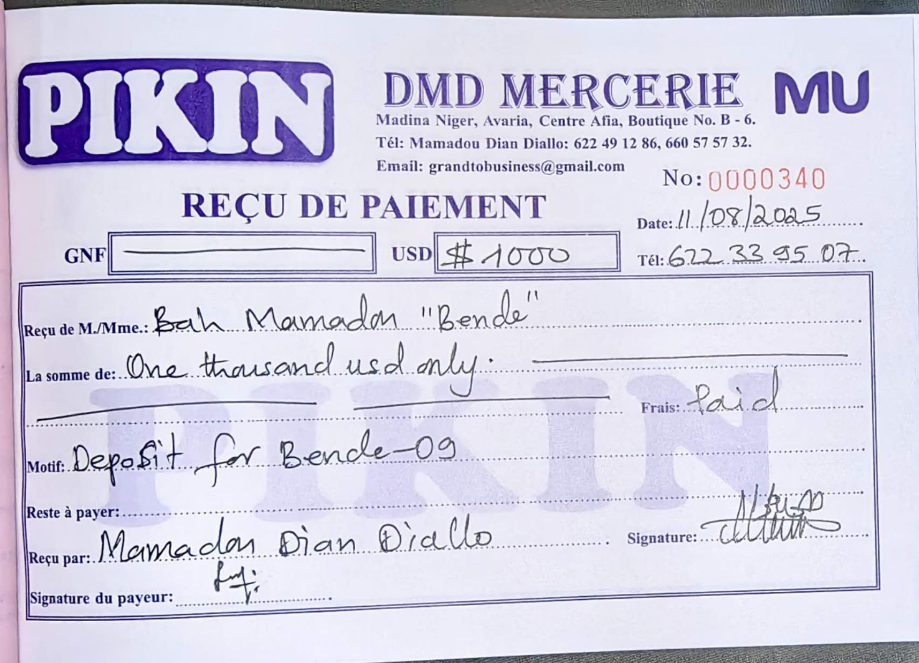 PIKIN
DMD MERCERIE
MU
Madina Niger, Avaria, Centre Afia, Boutique No. B - 6.
Tél: Mamadou Dian Diallo: 622 49 12 86, 660 57 57 32.
Email: grandtobusiness@gmail.com
No: 0000340
REÇU DE PAIEMENT
Date: 11/08/2025
GNF USD $ 1000
Tél: 622 33 95 07
Reçu de M./Mme.: Bah Mamadou "Bende"
La somme de: One thousand usd only.
Frais: Paid
Motif: Deposit for Bende-09
Reste à payer:
Reçu par: Mamadou Dian Diallo Signature:
Signature du payeur:
PIKIN